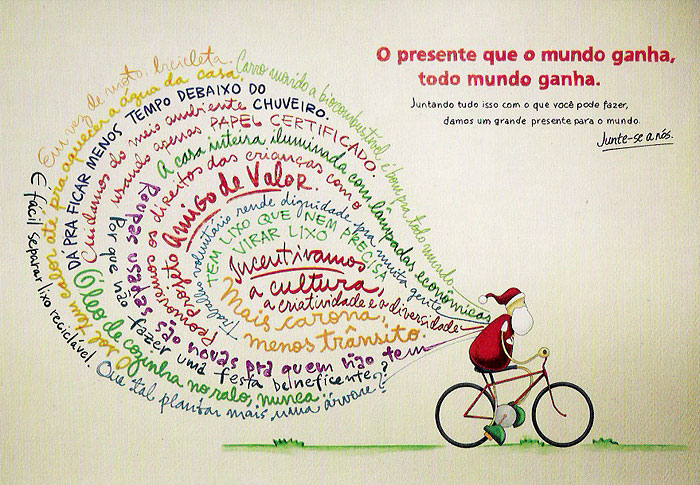 O presente que o mundo ganha,
todo mundo ganha.
Juntando tudo isso com o que você pode fazer,
damos um grande presente para o mundo.
Junte-se a nós.
Em vez de moto, bicicleta.
Carro movido a biocombustível é bom pra todo mundo.
O sol tem calor até pra aquecer a água da casa.
DÁ PRA FICAR MENOS TEMPO DEBAIXO DO CHUVEIRO.
Cuidamos do meio ambiente
usando apenas PAPEL CERTIFICADO.
A casa inteira iluminada com lâmpadas econômicas
Promovemos os direitos das crianças com o
projeto Amigo de Valor.
Trabalho voluntário rende dignidade pra muita gente
TEM LIXO QUE NEM PRECISA
VIRAR LIXO
Incentivamos
a cultura,
a criatividade e a diversidade
Mais carona,
menos trânsito.
Roupas usadas são novas pra quem não tem
Por que não fazer uma festa beneficente?
Óleo de cozinha no ralo, nunca.
É fácil separar lixo reciclável.
Que tal plantar mais uma árvore?